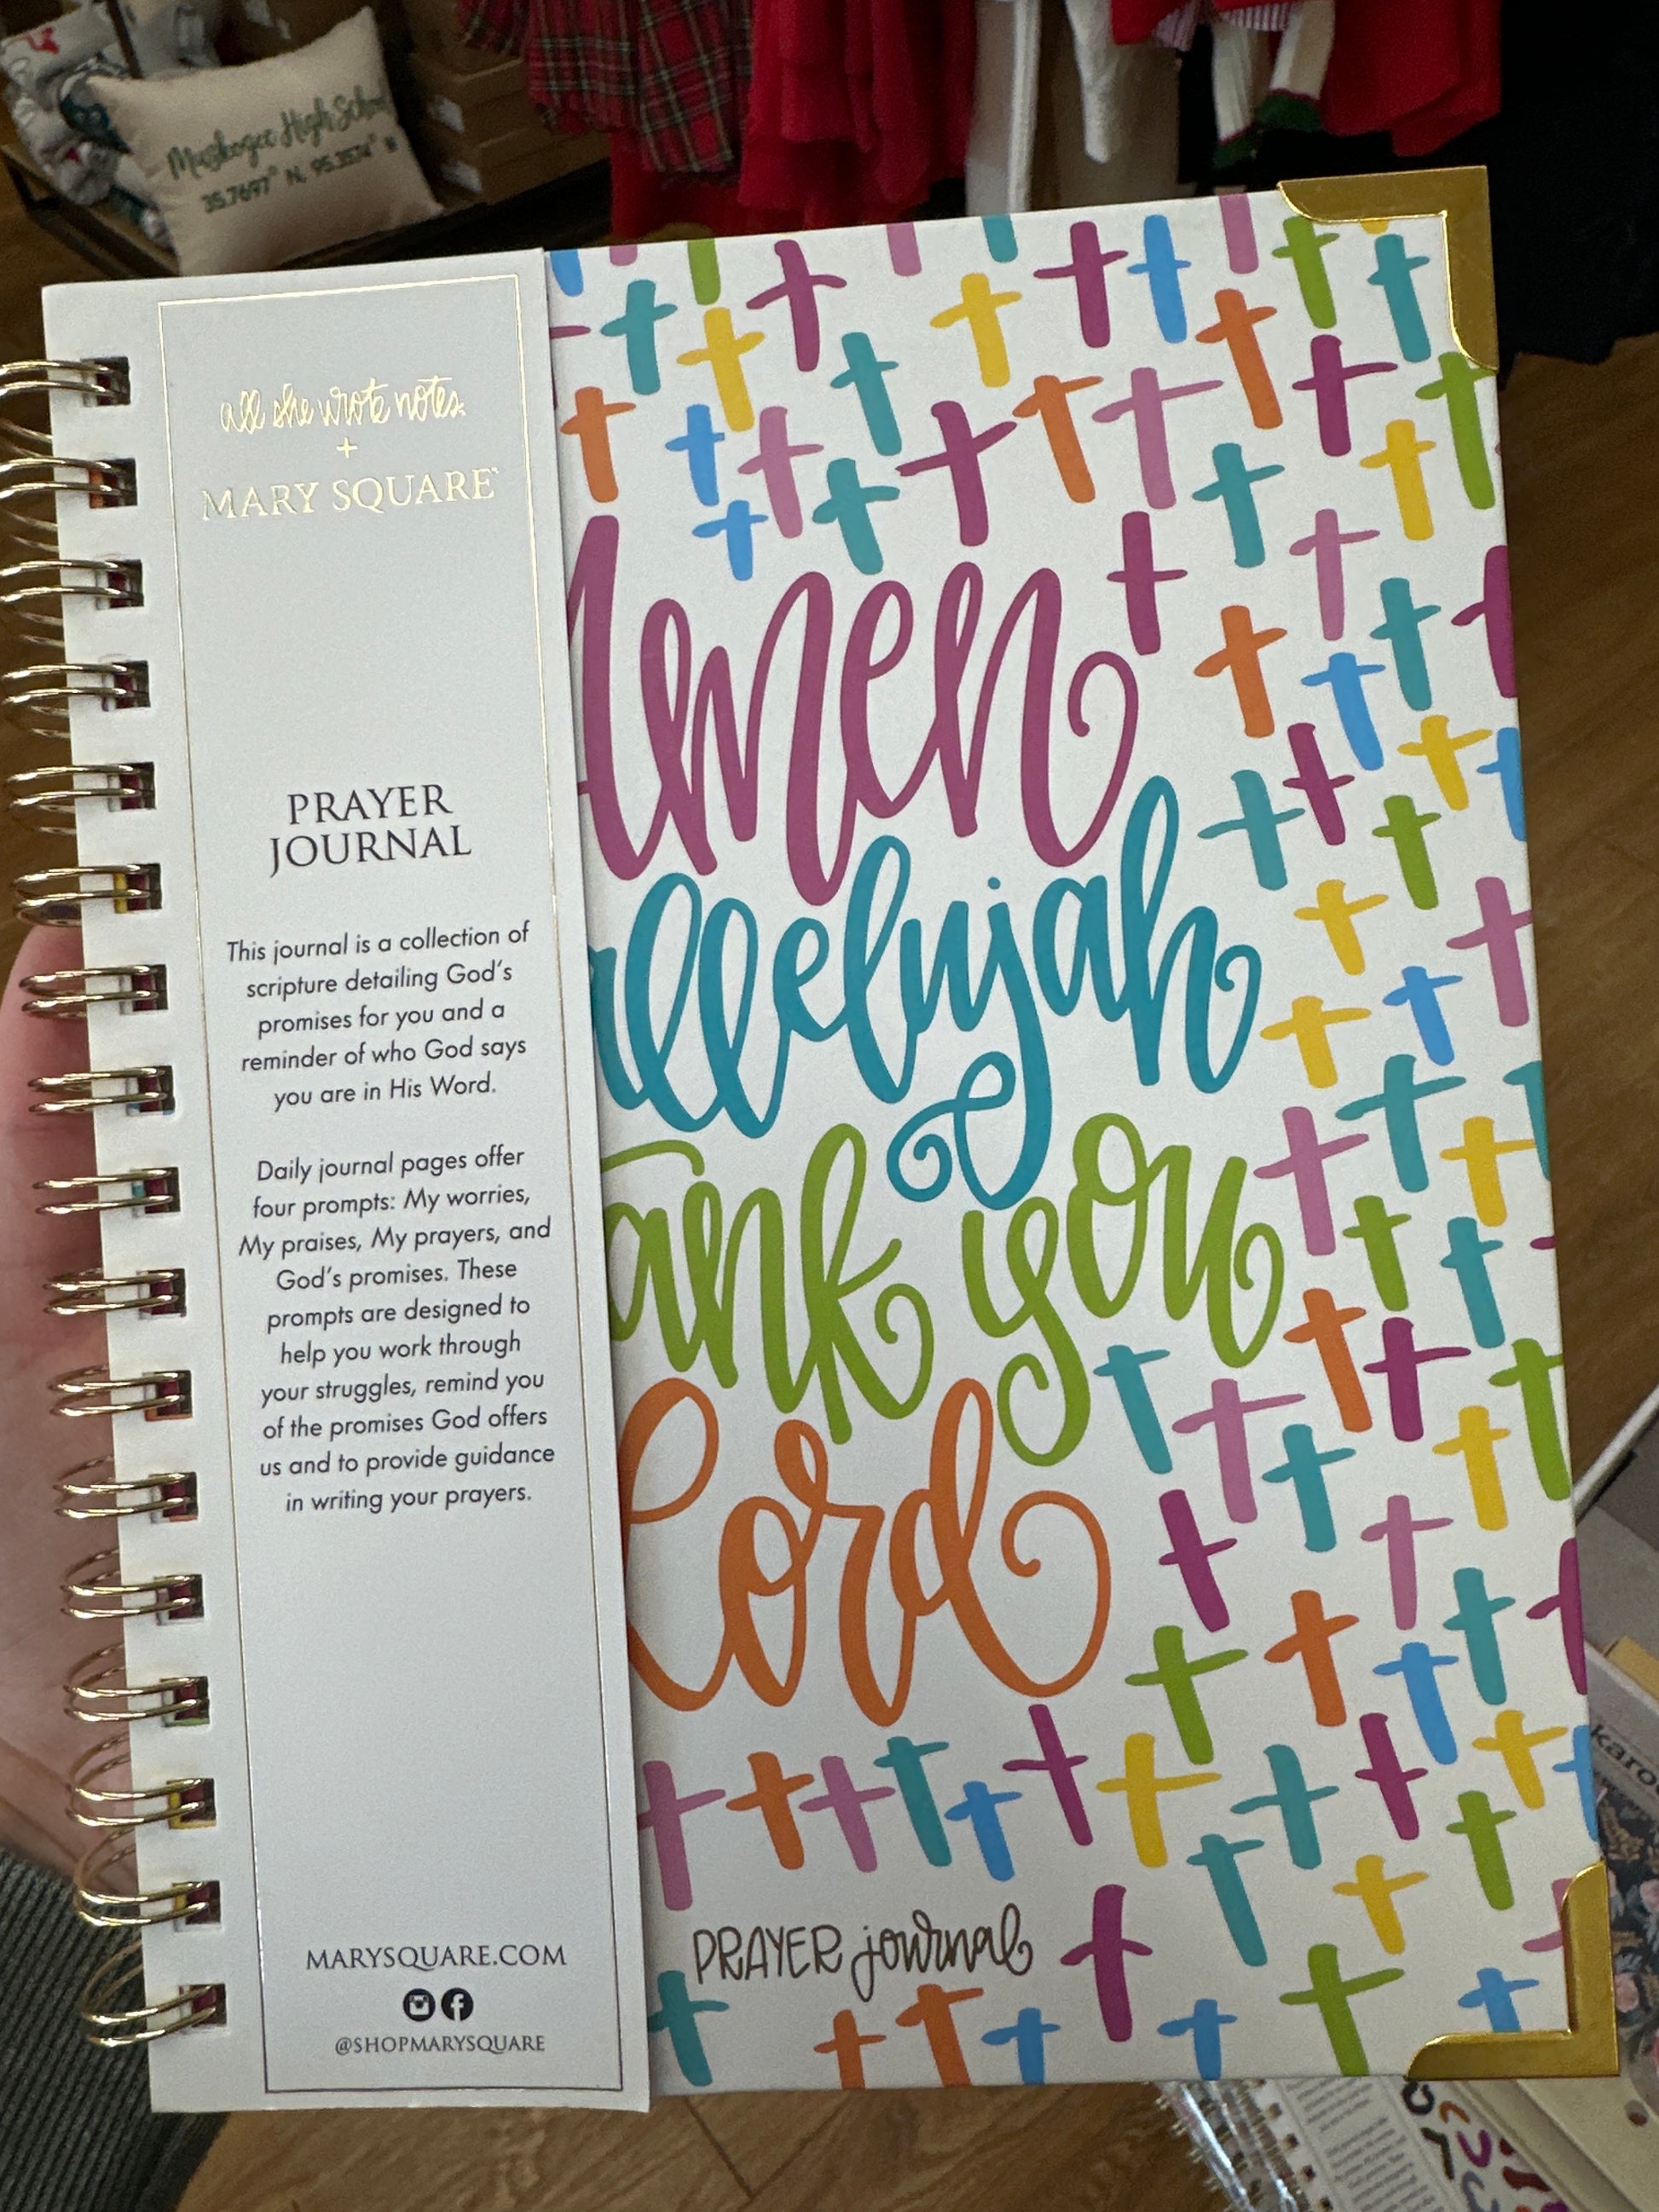 Muskogee High School
35.7697° N, 95.3574° W
all she wrote notes
+
MARY SQUARE
PRAYER
JOURNAL
This journal is a collection of
scripture detailing God's
promises for you and a
reminder of who God says
you are in His Word.
Daily journal pages offer
four prompts: My worries,
My praises, My prayers, and
God's promises. These
prompts are designed to
help you work through
your struggles, remind you
of the promises God offers
us and to provide guidance
in writing your prayers.
MARYSQUARE.COM
@SHOPMARYSQUARE
Amen
allelujah
ank you
Lord
PRAYER journal
karo